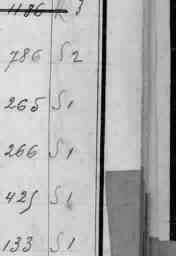 1186 R 3
786 S 2
265 S 1
266 S 1
425 S 1
133 S 1